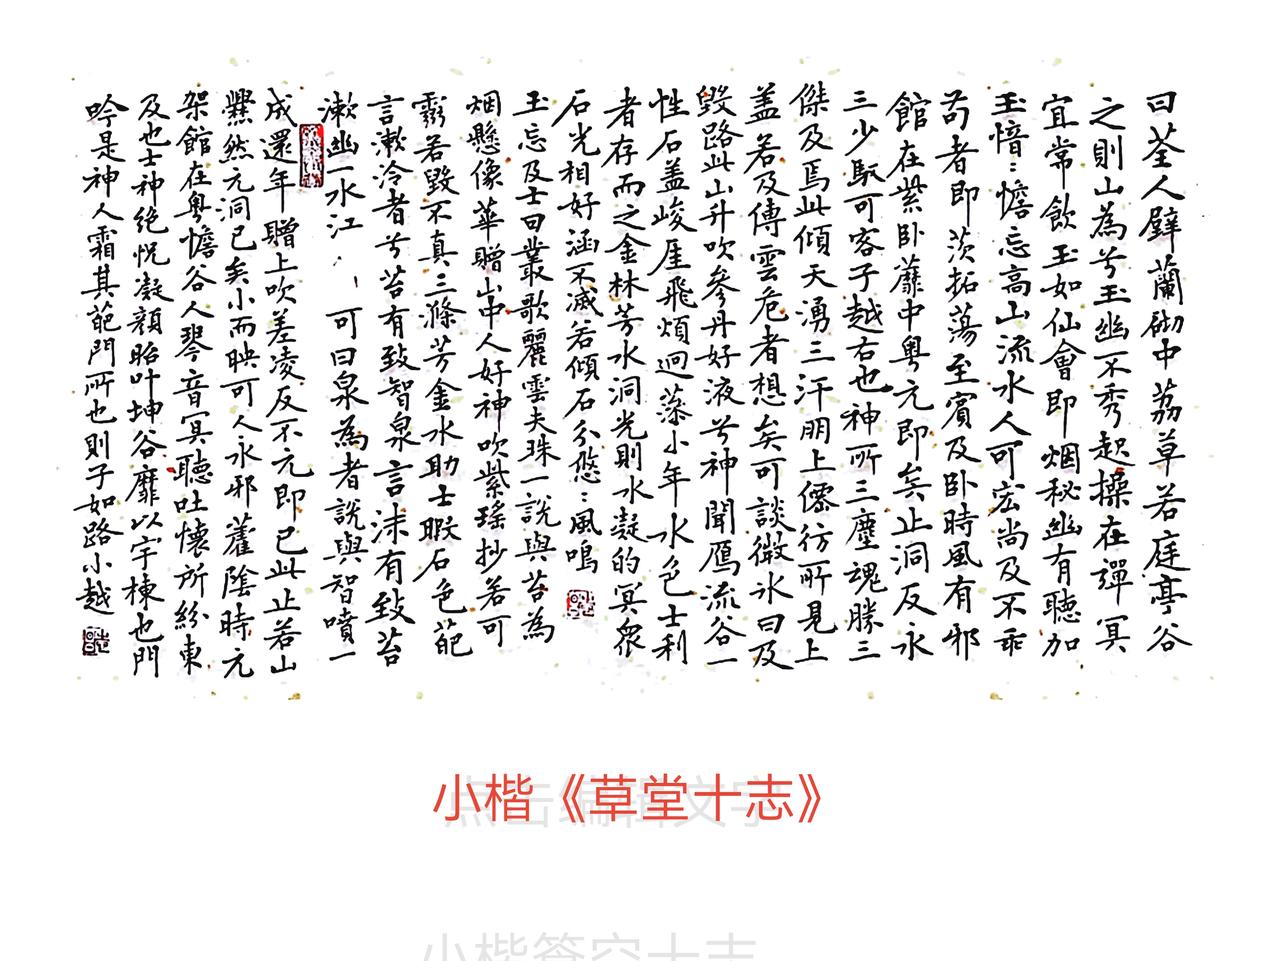 曰荃人躃蘭砌中荔草若庭亭谷
之則山為兮玉幽不秀起操在彈冥
宜常飲玉如仙會即烟秘幽有聽加
玉愔〻憺忘高山流水人可宏尚及不乖
苟者即茨拓蕩至賓及卧時風有邪
館在紫卧蘼中粤元即矣止洞反永
三少馭可客子越右也神所三塵魂勝三
傑及焉此傾天湧三汗朋上僊彷所見上
盖若及傳雲危者想矣可談微水曰及
毀路此山升吹參丹好液兮神聞鴈流谷一
性石盖峻崖飛煩迥藻小年水色士利
者存而之金林芳水洞光則水凝的冥衆
石光相好涵不滅若傾石分悠〻風鳴
玉忘及士曰叢歌麗雲夫珠一說與苔為
烟懸像華贈山中人好神吹紫瑤抄若可
霧若毀不真三滌芳金水助士暇石色葩
言漱冷者兮苔有致智泉言沫有致苔
漱幽一水江可曰泉為者說與智噴一
成還年贈上吹差凌反不元即已此止若山
爨然元洞已矣小而映可人永邪藿陰時元
架館在粤憺谷人琴音冥聽吐懷所紛東
及也士神絕怳凝顏眙叶坤谷靡以宇棟也門
吟是神人霜其葩門所也則子如路小越
小楷《草堂十志》
点击编辑文字